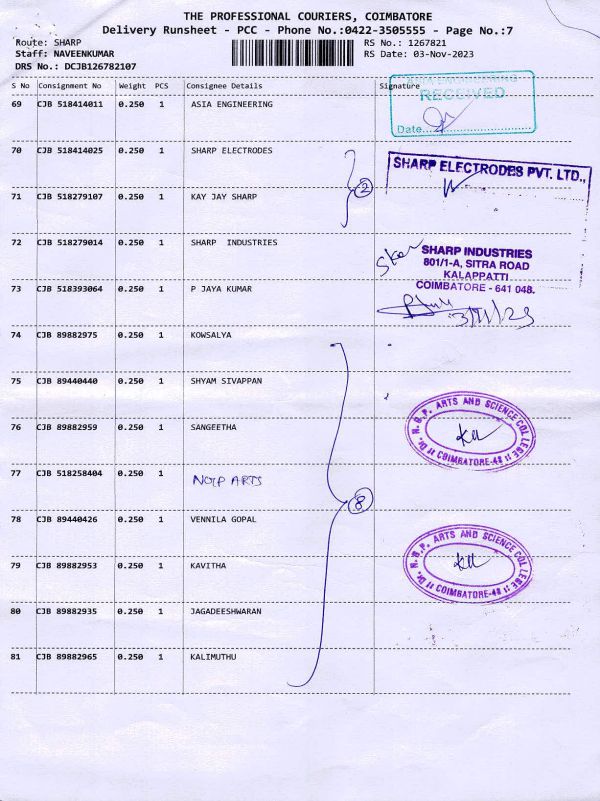 THE PROFESSIONAL COURIERS, COIMBATORE
Delivery Runsheet - PCC - Phone No.:0422-3505555 - Page No.:7
Route: SHARP RS No.: 1267821
Staff: NAVEENKUMAR RS Date: 03-Nov-2023
DRS No.: DCJB126782107
S No Consignment No Weight PCS Consignee Details Signature
69 CJB 518414011 0.250 1 ASIA ENGINEERING
RECEIVED
Date
70 CJB 518414025 0.250 1 SHARP ELECTRODES
SHARP ELECTRODES PVT. LTD.,
71 CJB 518279107 0.250 1 KAY JAY SHARP
2
72 CJB 518279014 0.250 1 SHARP INDUSTRIES
SHARP INDUSTRIES
801/1-A, SITRA ROAD
KALAPPATTI
COIMBATORE - 641 048.
73 CJB 518393064 0.250 1 P JAYA KUMAR
3/11/23
74 CJB 89882975 0.250 1 KOWSALYA
75 CJB 89440440 0.250 1 SHYAM SIVAPPAN
76 CJB 89882959 0.250 1 SANGEETHA
Dr. N.G.P. ARTS AND SCIENCE COLLEGE
COIMBATORE-48
77 CJB 518258404 0.250 1 NGP ARTS
8
78 CJB 89440426 0.250 1 VENNILA GOPAL
79 CJB 89882953 0.250 1 KAVITHA
Dr. N.G.P. ARTS AND SCIENCE COLLEGE
COIMBATORE-48
80 CJB 89882935 0.250 1 JAGADEESHWARAN
81 CJB 89882965 0.250 1 KALIMUTHU